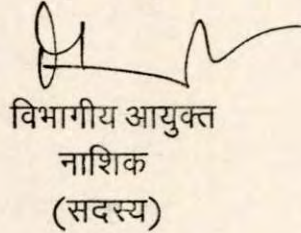 विभागीय आयुक्त
नाशिक
(सदस्य)